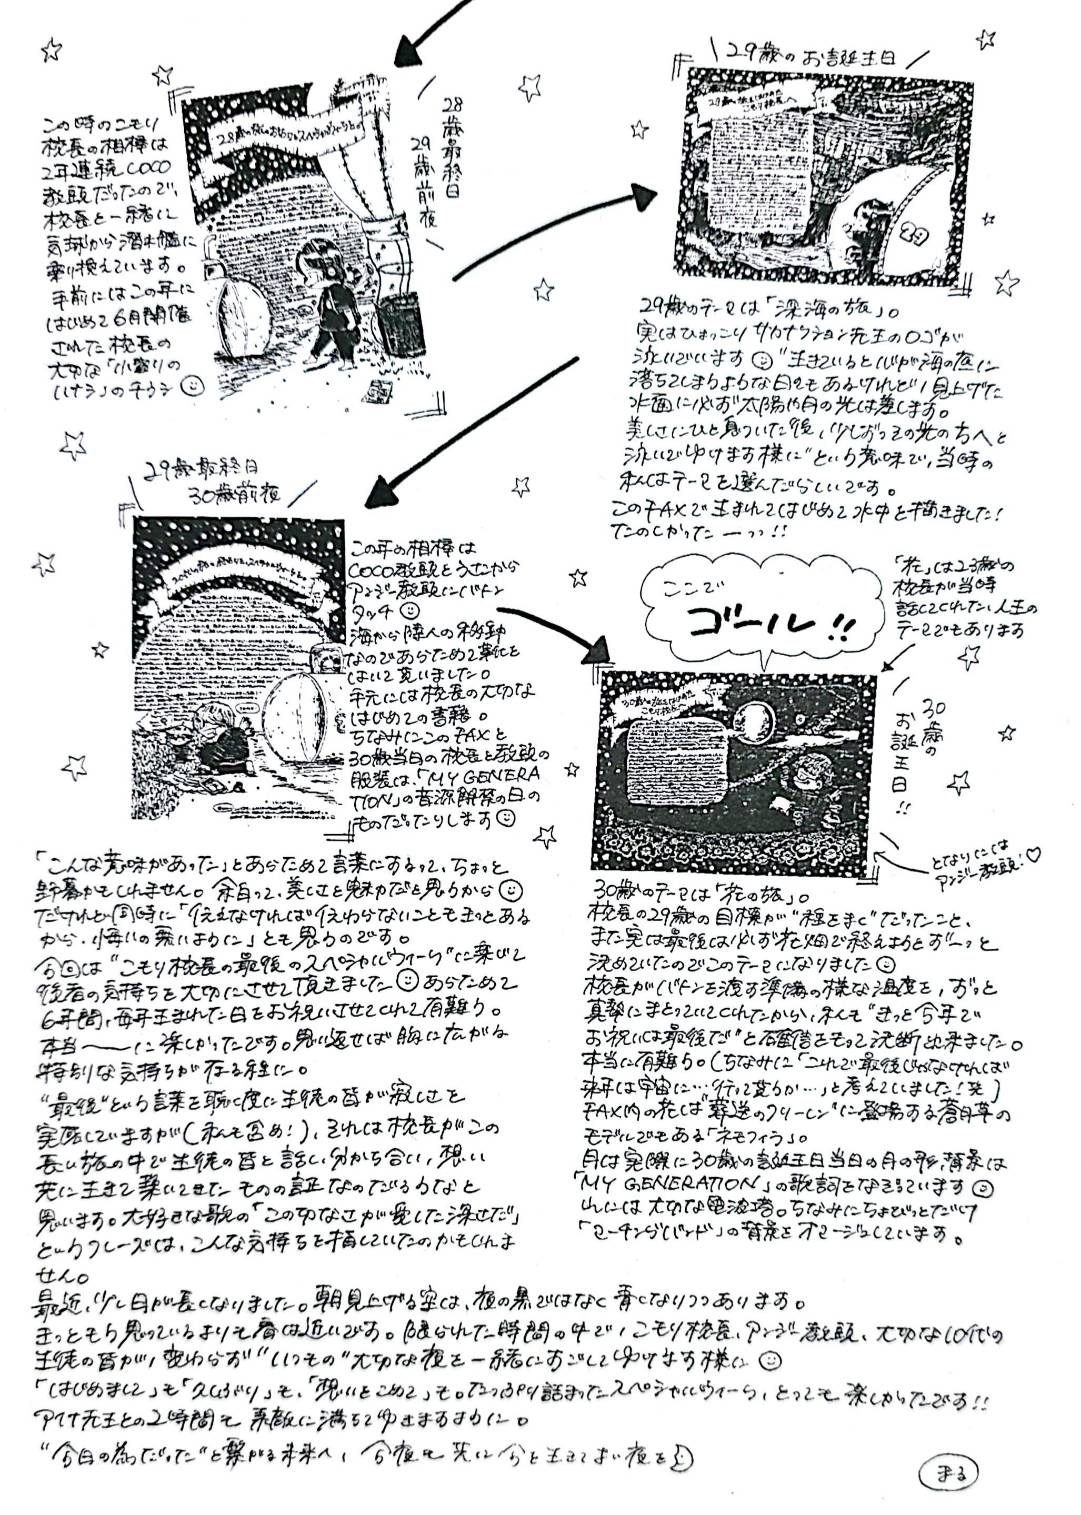 この時のこもり
校長の相棒は
2年連続COCO
教頭だったので、
校長と一緒に
気球から潜水艦に
乗り換えています。
手前にはこの年に
はじめて6月開催
された校長の
大切な「小籠りの
ハナシ」のチラシ
28歳最終日
29歳前夜
29歳のお誕生日
29
29歳のテーマは「深海の旅」。
実はひょっこりサカナクション先生のロゴが
泳いでいます
"生きていると心が海の底に
落ちてしまうような日々もあるけれど、見上げた
水面に必ず太陽や月の光は差します。
美しさにひと息ついた後、少しずつその光の方へと
泳いでゆけます様に"という意味で、当時の
私はテーマを選んだらしいです。
このFAXで生まれてはじめて水中を描きました!
たのしかったーっっ!!
29歳最終日
30歳前夜
この年の相棒は
COCO教頭とうさこから
アンジー教頭にバトン
タッチ
海から陸への移動
なのであらためて靴を
はいて貰いました。
手元には校長の大切な
はじめての書籍。
ちなみにこのFAXと
30歳当日の校長と教頭の
服装は、「MY GENERA
TION」の音源解禁の日の
ものだったりします
ここで
ゴール!!
「花」は23歳の
校長が当時
話してくれた、人生の
テーマでもあります
30歳の
お誕生日!!
となりには
アンジー教頭!♡
30歳のテーマは「花の旅」。
校長の29歳の目標が"種をまく"だったこと、
また実は最後は必ず花畑で終えようとずーっと
決めていたのでこのテーマになりました
校長がバトンを渡す準備の様な温度を、ずっと
真摯にまとっていてくれたから、私も"きっと今年で
お祝いは最後だ"と確信をもって決断出来ました。
本当に有難う。(ちなみに「これで最後じゃなければ
来年は宇宙に…行って貰うか…」と考えていました!笑)
FAX内の花は"葬送のフリーレン"に登場する蒼月草の
モデルでもある「ネモフィラ」。
月は実際に30歳の誕生日当日の月の形、背景は
「MY GENERATION」の歌詞をなぞっています
山には大切な電波塔。ちなみにちょびっとだけ
「マーチングバンド」の背景をオマージュしています。
「こんな意味があった」とあらためて言葉にするって、ちょっと
野暮かもしれません。余白って、美しさと魅力だと思うから
だけれど同時に「伝えなければ伝わらないこともきっとある
から、悔いの無いように」とも思うのです。
今回は"こもり校長の最後のスペシャルウィーク"に乗じて
後者の気持ちを大切にさせて頂きました
あらためて
6年間、毎年生まれた日をお祝いさせてくれて有難う。
本当〜〜に楽しかったです。思い返せば胸に広がる
特別な気持ちが在る程に。
"最後"という言葉を聴く度に生徒の皆が寂しさを
実感していますが(私も含め!)、それは校長がこの
長い旅の中で生徒の皆と話し、分かち合い、想い
共に生きて築いてきたものの証なのだろうなと
思います。大好きな歌の「この切なさが愛した深さだ」
というフレーズは、こんな気持ちを指していたのかもしれま
せん。
最近、少し日が長くなりました。朝見上げる空は、夜の黒ではなく青くなりつつあります。
きっともう思っているよりも春は近いです。限られた時間の中で、こもり校長、アンジー教頭、大切な10代の
生徒の皆が、変わらず"いつもの"大切な夜を一緒にすごしてゆけます様に
「はじめまして」も「久しぶり」も、「想いをこめて」も。たっぷり詰まったスペシャルウィーク、とっても楽しかったです!!
アイナ先生との2時間も素敵に満ちてゆきますように。
"今日の為だった"と繋がる未来へ、今夜も共に今を生きて良い夜を
まる